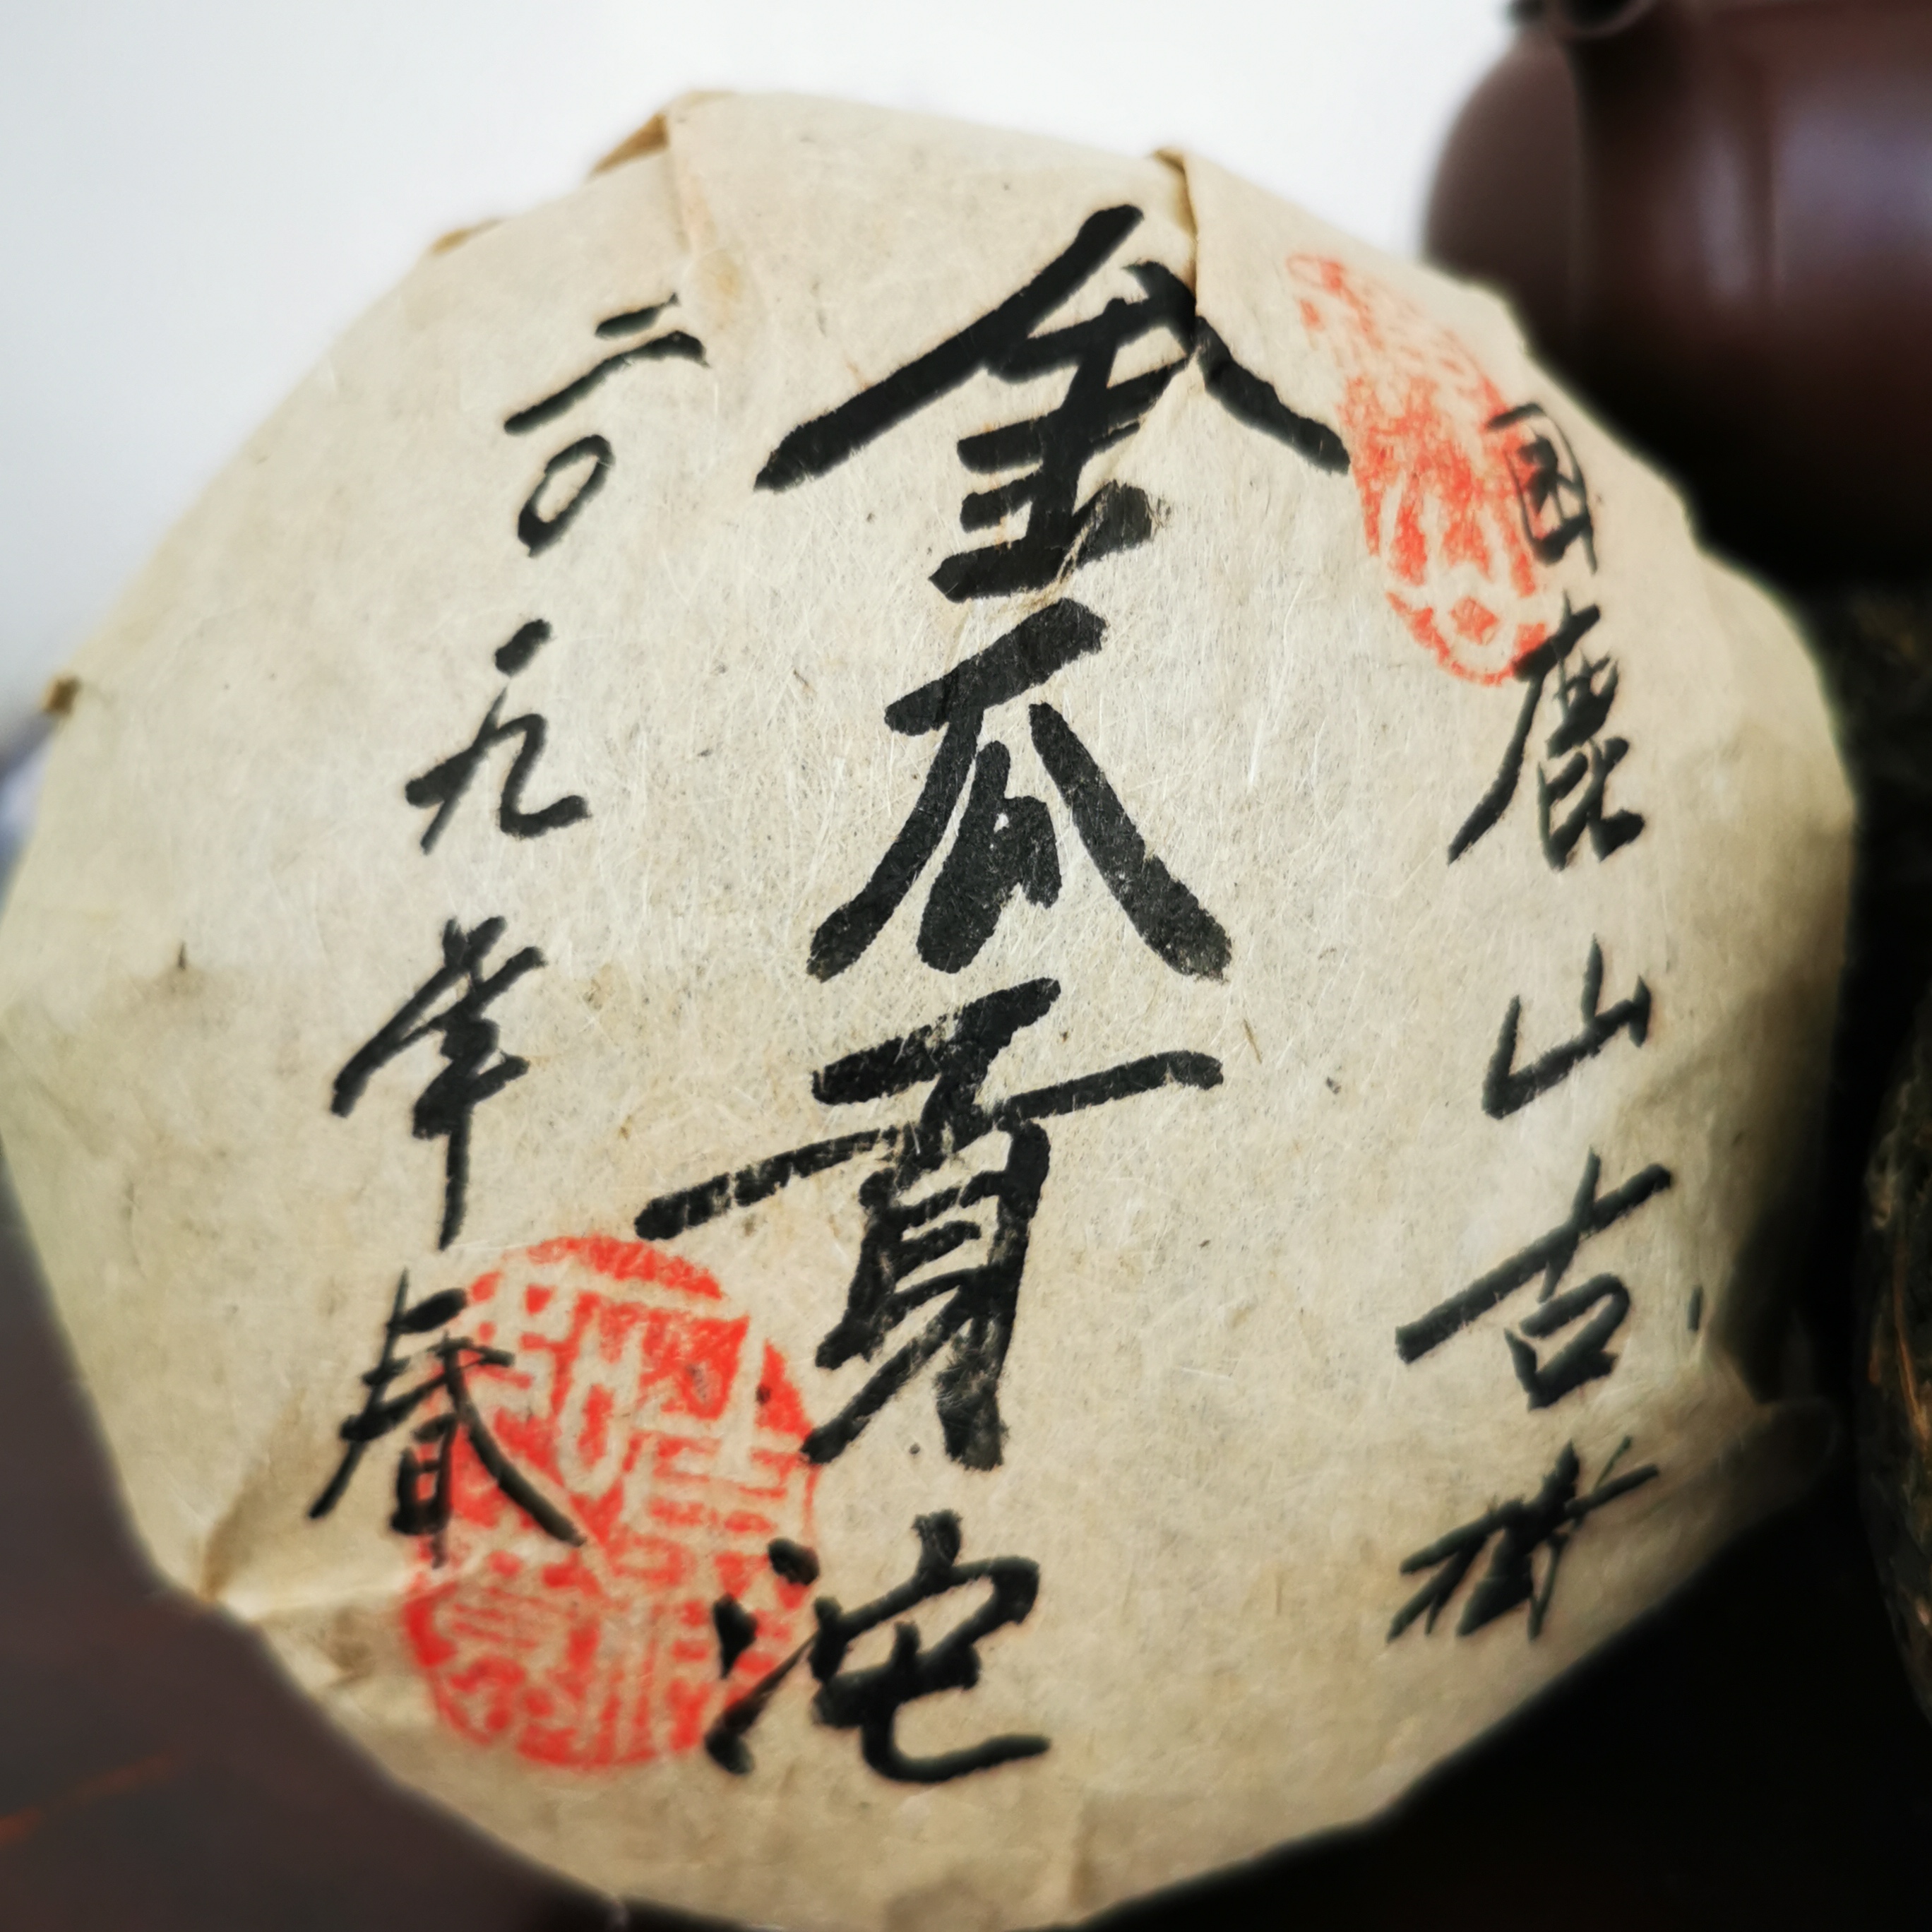 困鹿山古樹
金瓜貢沱
二〇一九年春